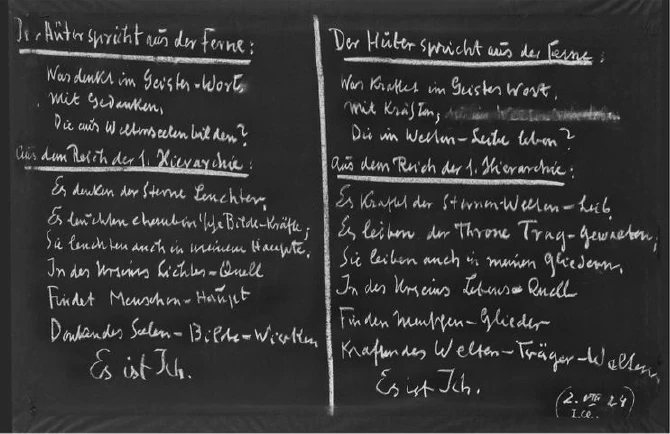 Der Hüter spricht aus der Ferne:
Was denkt im Geister-Wort,
Mit Gedanken,
Die aus Weltenseelen bilden?
Aus dem Reich der 1. Hierarchie:
Es denken der Sterne Leuchter,
Es leuchten cherubinische Bilde-Kräfte;
Sie leuchten auch in meinem Haupte,
In des Urseins Lichtes-Quell
Findet Menschen-Haupt
Denkendes Seelen-Bilde-Wirken
Es ist Ich.
Der Hüter spricht aus der Ferne:
Was kraftet im Geister Wort,
Mit Kräften,
Die im Welten-Leibe leben?
Aus dem Reich der 1. Hierarchie:
Es kraftet der Sternen-Welten-Leib,
Es leiben der Throne Trag-Gewalten;
Sie leiben auch in meinen Gliedern,
In des Urseins Lebens-Quell
Finden Menschen-Glieder
Kraftendes Welten-Träger-Walten,
Es ist Ich.
(2. VIII 24)